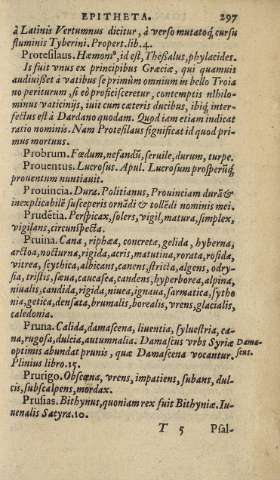 EPITHETA. 297
à Latinis Vertumnus dicitur, à verso mutatoq; cursu
fluminis Tyberini. Propert.lib.4.
Protesilaus. Hæmoni⁹, id est, Thessalus, phylacides.
Is fuit vnus ex principibus Græciæ, qui quamuis
audiuisset à vatibus se primùm omnium in bello Troia
no periturum, si eò proficisceretur, contemptis nihilo-
minus vaticinijs, iuit cum cæteris ducibus, ibiq; inter-
fectus est à Dardano quodam. Quod iam etiam indicat
ratio nominis. Nam Protesilaus significat id quod pri-
mus mortuus.
Probrum. Fœdum, nefandũ, seruile, durum, turpe.
Prouentus. Lucrosus. Apul. Lucrosum prosperũq;
prouentum nuntiauit.
Prouincia. Dura. Politianus, Prouinciam durã &
inexplicabilẽ susceperis ornãdi & tollẽdi nominis mei.
Prudẽtia. Perspicax, solers, vigil, matura, simplex,
vigilans, circunspecta.
Pruina. Cana, riphæa, concreta, gelida, hyberna,
arctoa, nocturna, rigida, acris, matutina, rorata, rosida,
vitrea, scythica, albicans, canens, stricta, algens, odry-
sia, tristis, sæua, caucasea, candens, hyperborea, alpina,
niualis, candida, rigida, niuea, ignaua, sarmatica, sytho
nia, getica, densata, brumalis, borealis, vrens, glacialis,
caledonia.
Pruna. Calida, damascena, liuentia, syluestria, ca-
na, rugosa, dulcia, autumnalia. Damascus vrbs Syriæ
Damas-
cus.
optimis abundat prunis, quæ Damascena vocantur.
Plinius libro.15.
Prurigo. Obscœna, vrens, impatiens, subans, dul-
cis, subscalpens, mordax.
Prusias. Bithynus, quoniam rex fuit Bithyniæ. Iu-
uenalis Satyra.10.
T 5 Psal-